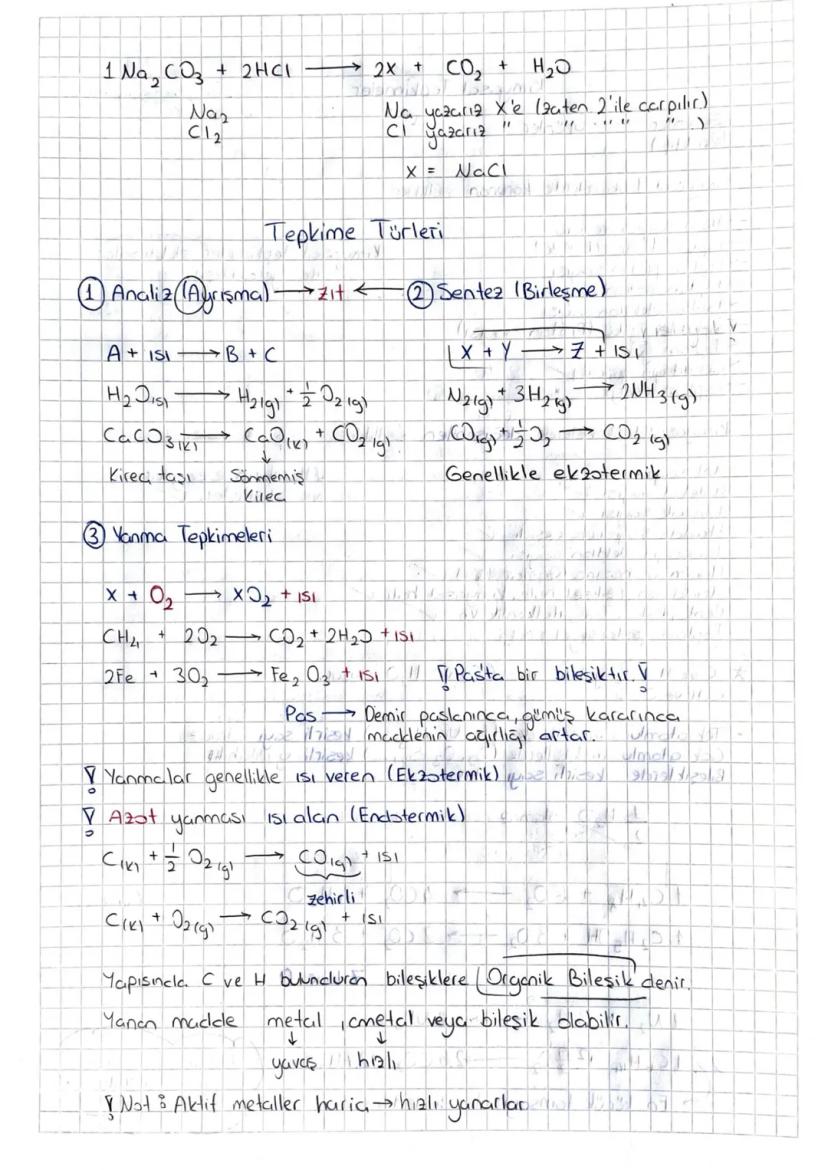 1 Na₂CO₃ + 2HCl → 2X + CO₂ + H₂O
Na₂ Na yazarız X'e (zaten 2'ile çarpılır)
Cl₂ Cl yazarız " " " " " )
X = NaCl
Tepkime Türleri
① Analiz (Ayrışma) → zıt ← ② Sentez (Birleşme)
A + ısı → B + C X + Y → Z + ısı
H₂O(s) → H₂(g) + 1/2 O₂(g) N₂(g) + 3H₂(g) → 2NH₃(g)
CaCO₃(k) → CaO(k) + CO₂(g) CO(g) + 1/2 O₂ → CO₂(g)
↓
Kireç taşı Sönmemiş Genellikle ekzotermik
Kireç
③ Yanma Tepkimeleri
X + O₂ → XO₂ + ısı
CH₄ + 2O₂ → CO₂ + 2H₂O + ısı
2Fe + 3O₂ → Fe₂O₃ + ısı ! Pas'ta bir bileşiktir. !
Pas → Demir paslanınca, gümüş kararınca
maddenin ağırlığı artar.
! Yanmalar genellikle ısı veren (Ekzotermik)
! Azot yanması ısı alan (Endotermik)
C(k) + 1/2 O₂(g) → CO(g) + ısı
zehirli
C(k) + O₂(g) → CO₂(g) + ısı
Yapısında C ve H bulunduran bileşiklere Organik Bileşik denir.
Yanan madde metal, ametal veya bileşik olabilir.
↓ ↓
yavaş hızlı
! Not : Aktif metaller hariç → hızlı yanarlar